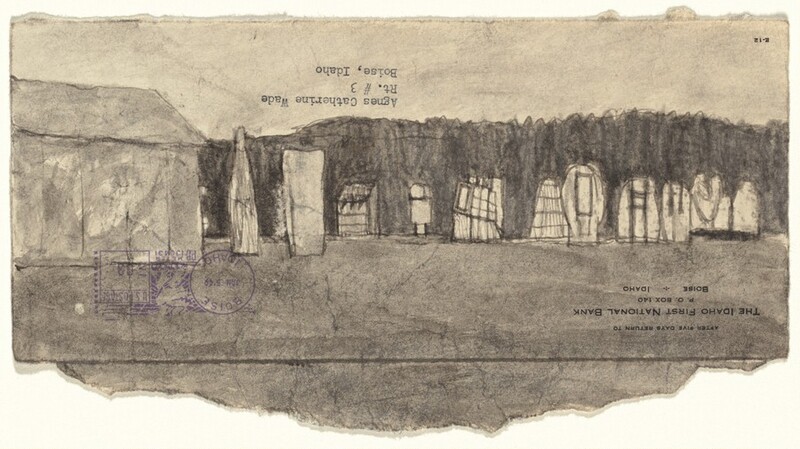 AFTER FIVE DAYS RETURN TO
THE IDAHO FIRST NATIONAL BANK
P. O. BOX 140
BOISE ÷ IDAHO
BOISE
IDAHO
Agnes Catherine Wade
Rt. # 3
Boise, Idaho
2-12